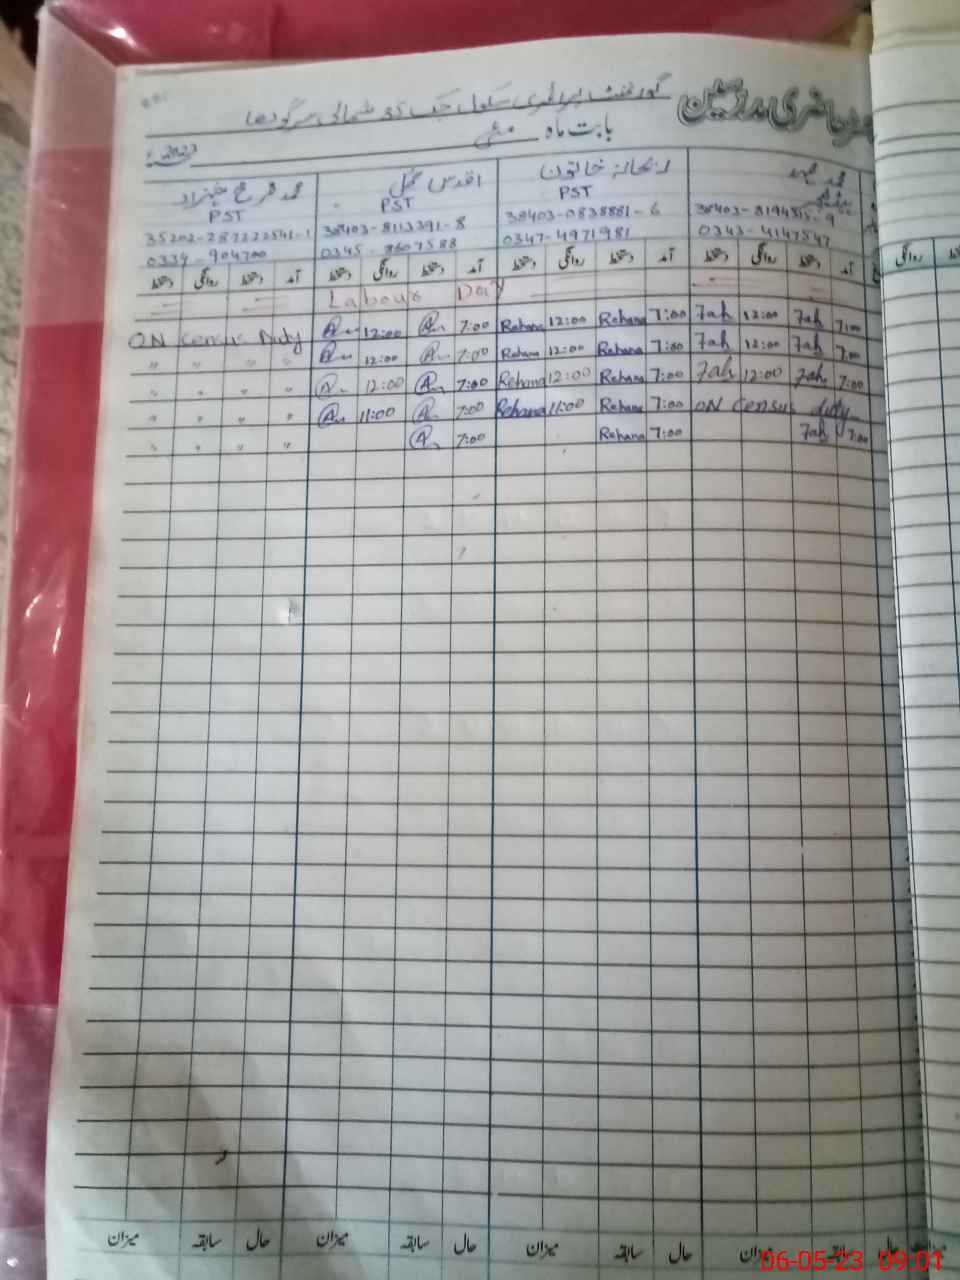 حاضری مدرسین
گورنمنٹ پرائمری سکول چک 35 شمالی سرگودھا
بابت ماہ مئی 2023ء
محمد ریحانہ خاتون اقدس محمد فرخ شہزاد
PST PST PST
38403-0838881-6 38403-8113391-8
0343-4147547 0347-4971981 0345-8607588 0334-904700
آمد دستخط روانگی دستخط آمد دستخط روانگی دستخط آمد دستخط روانگی دستخط آمد دستخط روانگی دستخط
روانگی
Labour Day
ON Census Duty 12:00 7:00 Rehana 12:00 Rehana 7:00 7ah 12:00 7ah 7:00
" " " " 12:00 7:00 Rehana 12:00 Rehana 7:00 7ah 12:00 7ah 7:00
" " " " 12:00 7:00 Rehana 12:00 Rehana 7:00 7ah 12:00 7ah 7:00
" " " " 11:00 7:00 Rehana 11:00 Rehana 7:00 ON Census duty
" " " " 7:00 Rehana 7:00 7ah 7:00
حال سابقہ میزان حال سابقہ میزان حال سابقہ میزان حال سابقہ میزان
06-05-23 09:01